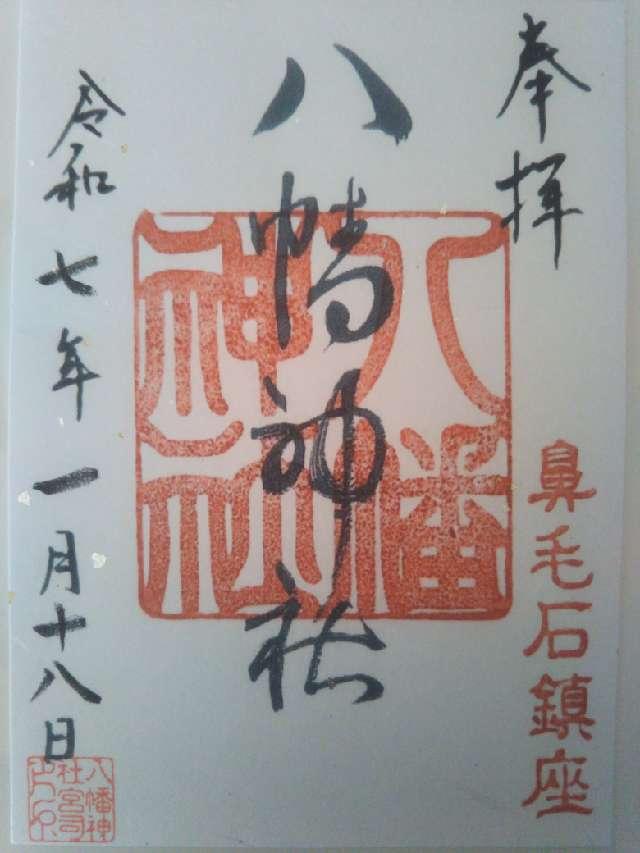 奉拝
鼻毛石鎮座
八幡神社
八幡神社
令和七年一月十八日
八幡神社宮司之印